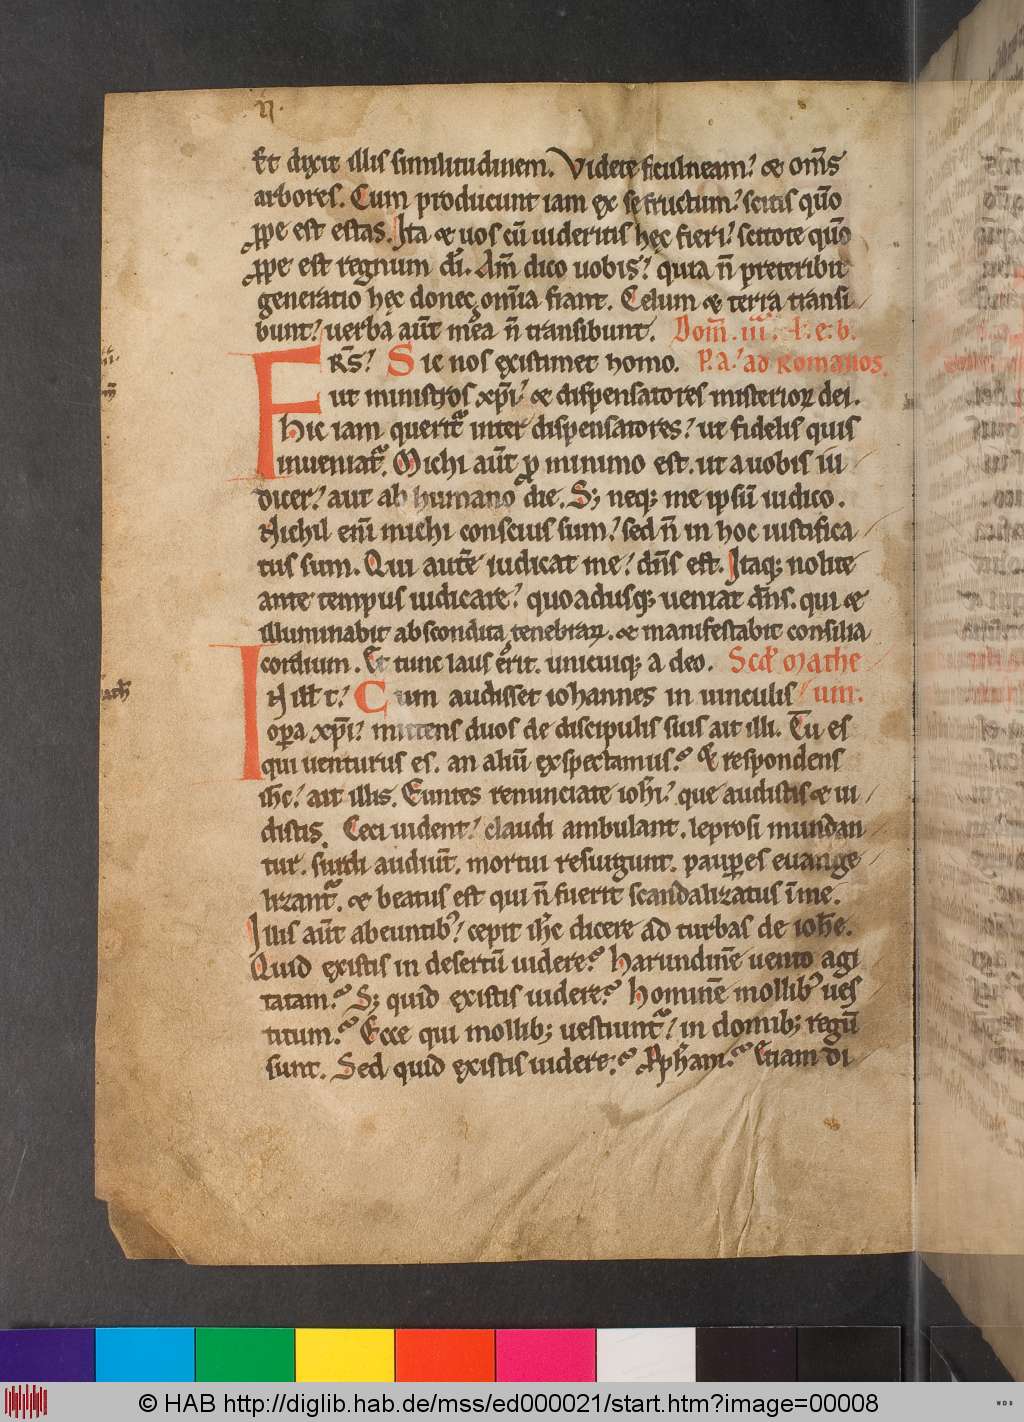 II.
Et dixit illis similitudinem. Videte ficulneam? & om̄s
arbores. Cum producunt iam ex se fructum? scitis qūo
ꝓpe est estas. Ita & uos cū uideritis hęc fieri? scitote qūo
ꝓpe est regnum dī. Am̄ dico uobis? quia n̄ preteribit
generatio hęc donec om̄ia fiant. Celum & terra transi/
bunt? uerba aūt mea n̄ transibunt. Dom̄. iii. A. e. b.
FRS̄? Sic nos existimet homo. P. a? ad Romanos.
ut ministros xp̄i? & dispensatores misterioꝝ dei.
Hic iam querit᷑ inter dispensatores? ut fidelis quis
inueniat᷑. Michi aūt ꝓ minimo est. ut a uobis iu/
dicer? aut ab humano die. S; neq; me ipsū iudico.
Nichil eni᷑ michi conscius sum? sed n̄ in hoc iustifica/
tus sum. Qui autē iudicat me? dn̄s est. Itaq; nolite
ante tempus iudicare? quoadusq; ueniat dn̄s. qui &
illuminabit abscondita tenebraꝝ. & manifestabit consilia
cordium. Et tunc laus erit. unicuiq; a deo. Scd̄ Mathe
IN ill̄ t? Cum audisset iohannes in uinculis / um.
opa xp̄i? mittens duos de discipulis suis ait illi. Tu es
qui uenturus es. an aliū exspectamus? Et respondens
ih̄c? ait illis. Euntes renunciate ioh̄i? que audistis & ui/
distis. Ceci uident? claudi ambulant. leprosi mundan/
tur. surdi audiūt. mortui resurgunt. pauꝑes euange/
lizant᷑. & beatus est qui n̄ fuerit scandalizatus ī me.
Illis aūt abeuntib᷒? cepit ih̄c dicere ad turbas de ioh̄e.
Quid existis in desertū uidere? harundinē uento agi/
tatam? S; quid existis uidere? hominē mollib᷒ ues/
titum? Ecce qui mollib; uestiunt᷑? in domib; regū
sunt. Sed quid existis uidere? ꝓph̄am? Etiam di
© HAB http://diglib.hab.de/mss/ed000021/start.htm?image=00008